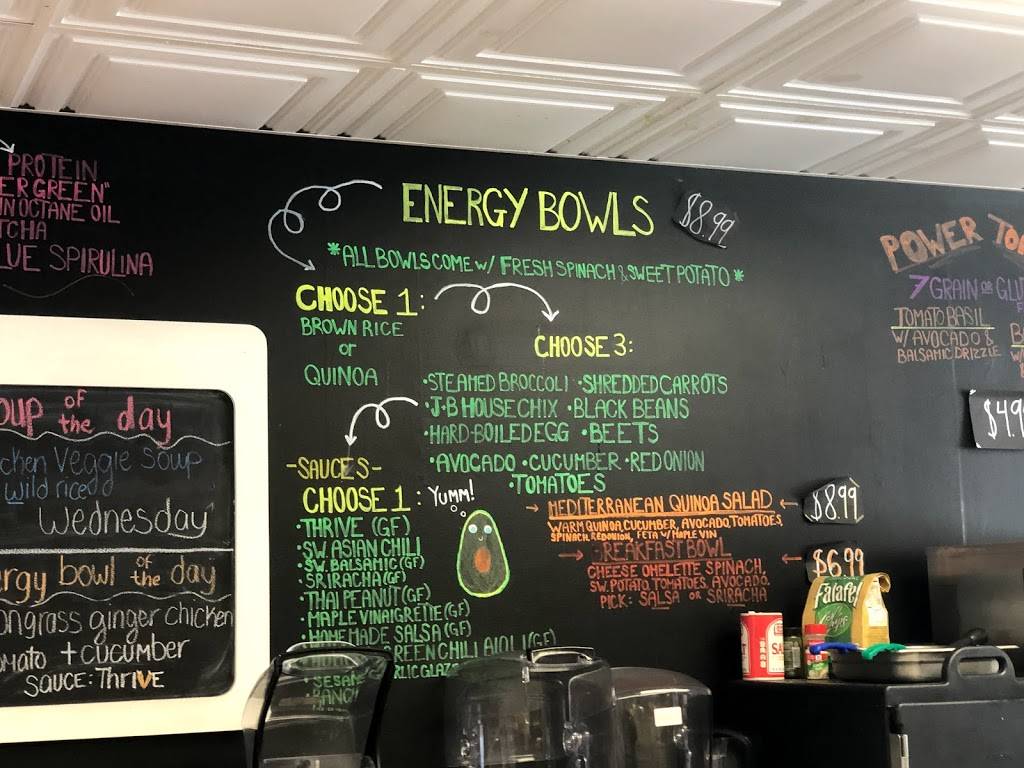 PROTEIN
ER GREEN"
IN OCTANE OIL
TCHA
LUE SPIRULINA
oup of the day
cken Veggie Soup
wild rice
Wednesday
ergy bowl of the day
ongrass ginger chicken
omato + cucumber
SAUCE: ThriVE
ENERGY BOWLS
$8.99
*ALL BOWLS COME W/ FRESH SPINACH & SWEET POTATO*
CHOOSE 1:
BROWN RICE
or
QUINOA
CHOOSE 3:
•STEAMED BROCCOLI •SHREDDED CARROTS
•J•B HOUSE CHIX •BLACK BEANS
•HARD-BOILED EGG •BEETS
•AVOCADO •CUCUMBER •RED ONION
•TOMATOES
-SAUCES-
CHOOSE 1:
YUMM!
•THRIVE (GF)
•SW. ASIAN CHILI
•SW. BALSAMIC (GF)
•SRIRACHA (GF)
•THAI PEANUT (GF)
•MAPLE VINAIGRETTE (GF)
•HOMEMADE SALSA (GF)
GREEN CHILI AIOLI (GF)
RLIC GLAZE
•SESAM
•RANCH
MEDITERRANEAN QUINOA SALAD
$8.99
WARM QUINOA, CUCUMBER, AVOCADO, TOMATOES,
SPINACH, RED ONION, FETA W/ MAPLE VIN
BREAKFAST BOWL
$6.99
CHEESE OMELETTE SPINACH,
SW. POTATO, TOMATOES, AVOCADO.
PICK: SALSA OR SRIRACHA
POWER TO
7 GRAIN OR GLU
TOMATO BASIL
W/ AVOCADO &
BALSAMIC DRIZZLE
$4.9
Falafel
SA